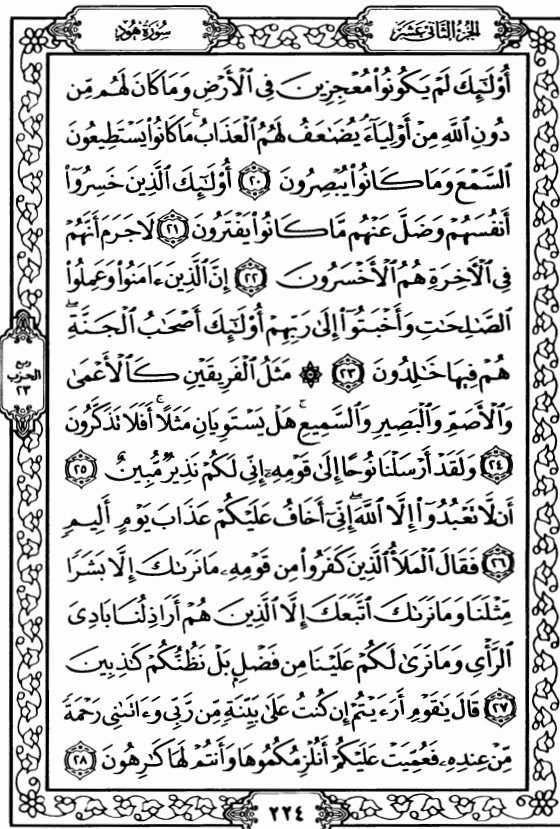 سُورَةُ هُودٍ
الجُزْءُ الثَّانِي عَشَرَ
أُوْلَٰٓئِكَ لَمْ يَكُونُواْ مُعْجِزِينَ فِي ٱلْأَرْضِ وَمَا كَانَ لَهُم مِّن
دُونِ ٱللَّهِ مِنْ أَوْلِيَآءَ يُضَٰعَفُ لَهُمُ ٱلْعَذَابُ ۚ مَا كَانُواْ يَسْتَطِيعُونَ
ٱلسَّمْعَ وَمَا كَانُواْ يُبْصِرُونَ ۝٢٠ أُوْلَٰٓئِكَ ٱلَّذِينَ خَسِرُوٓاْ
أَنفُسَهُمْ وَضَلَّ عَنْهُم مَّا كَانُواْ يَفْتَرُونَ ۝٢١ لَا جَرَمَ أَنَّهُمْ
فِي ٱلْأَخِرَةِ هُمُ ٱلْأَخْسَرُونَ ۝٢٢ إِنَّ ٱلَّذِينَ ءَامَنُواْ وَعَمِلُواْ
ٱلصَّٰلِحَٰتِ وَأَخْبَتُوٓاْ إِلَىٰ رَبِّهِمْ أُوْلَٰٓئِكَ أَصْحَٰبُ ٱلْجَنَّةِ ۖ
هُمْ فِيهَا خَٰلِدُونَ ۝٢٣ ۞ مَثَلُ ٱلْفَرِيقَيْنِ كَٱلْأَعْمَىٰ
وَٱلْأَصَمِّ وَٱلْبَصِيرِ وَٱلسَّمِيعِ ۚ هَلْ يَسْتَوِيَانِ مَثَلًا ۚ أَفَلَا تَذَكَّرُونَ
۝٢٤ وَلَقَدْ أَرْسَلْنَا نُوحًا إِلَىٰ قَوْمِهِۦٓ إِنِّي لَكُمْ نَذِيرٌ مُّبِينٌ ۝٢٥
أَن لَّا تَعْبُدُوٓاْ إِلَّا ٱللَّهَ ۖ إِنِّيٓ أَخَافُ عَلَيْكُمْ عَذَابَ يَوْمٍ أَلِيمٍ
۝٢٦ فَقَالَ ٱلْمَلَأُ ٱلَّذِينَ كَفَرُواْ مِن قَوْمِهِۦ مَا نَرَىٰكَ إِلَّا بَشَرًا
مِّثْلَنَا وَمَا نَرَىٰكَ ٱتَّبَعَكَ إِلَّا ٱلَّذِينَ هُمْ أَرَاذِلُنَا بَادِيَ
ٱلرَّأْيِ وَمَا نَرَىٰ لَكُمْ عَلَيْنَا مِن فَضْلٍۭ بَلْ نَظُنُّكُمْ كَٰذِبِينَ
۝٢٧ قَالَ يَٰقَوْمِ أَرَءَيْتُمْ إِن كُنتُ عَلَىٰ بَيِّنَةٍ مِّن رَّبِّي وَءَاتَىٰنِي رَحْمَةً
مِّنْ عِندِهِۦ فَعُمِّيَتْ عَلَيْكُمْ أَنُلْزِمُكُمُوهَا وَأَنتُمْ لَهَا كَٰرِهُونَ ۝٢٨
ربع
الحزب
٢٣
٢٢٤